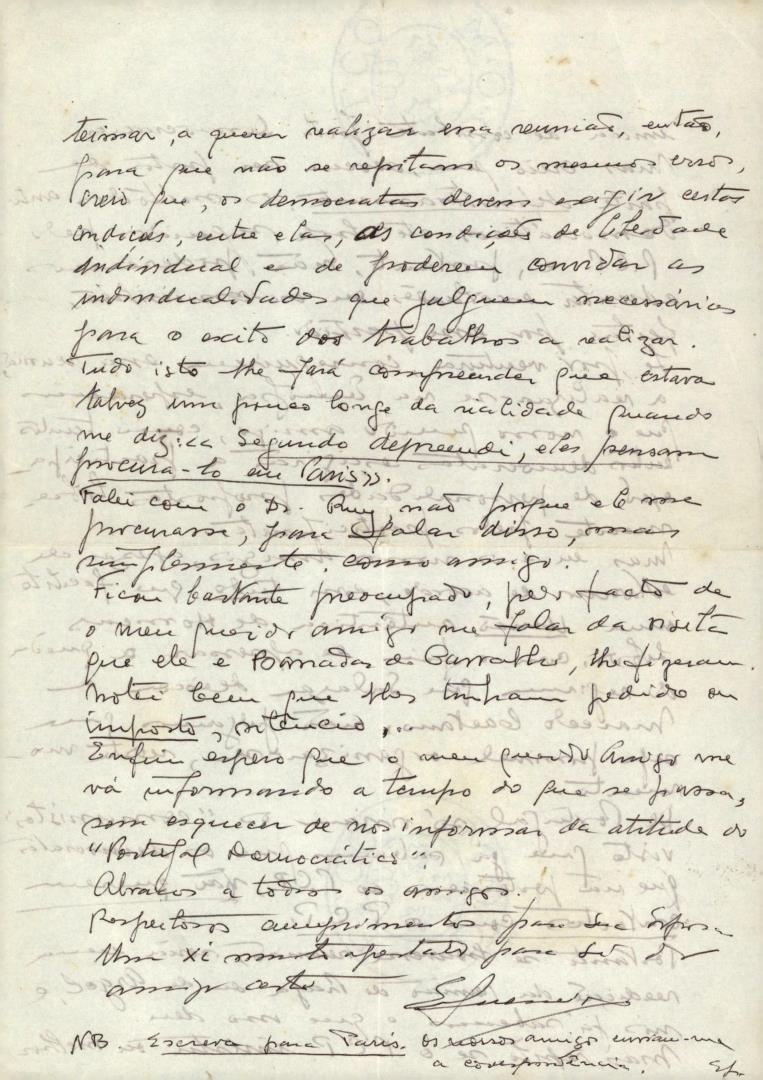 teimar, a querer realizar essa reunião, então,
para que não se repitam os mesmos erros,
creio que, os democratas devem exigir certas
condições, entre elas, as condições de liberdade
individual e de poderem convidar as
individualidades que julguem necessárias
para o exito dos trabalhos a realizar.
Tudo isto lhe fará compreender que estava
talvez um pouco longe da realidade quando
me diz: «Segundo depreendi, eles pensam
procura-lo em Paris».
Falei com o Dr. Ruy, não porque ele me
procurasse, para falar disso, mas
simplesmente, como amigo.
Ficou bastante preocupado, pelo facto de
o meu querido amigo me falar da visita
que ele e Bornadas de Carvalho, lhe fizeram.
Notei bem que lhes tinham pedido ou
imposto, silencio,...
Enfim espero que o meu querido Amigo me
vá informando a tempo do que se passa,
sem esquecer de nos informar da atitude do
"Portugal Democrático".
Abraços a todos os amigos.
Respeitosos cumprimentos para sua Esposa
Um xi muito apertado para si do
amigo certo
NB. Escreva para Paris. Os nossos amigos enviam-me
a correspondência.